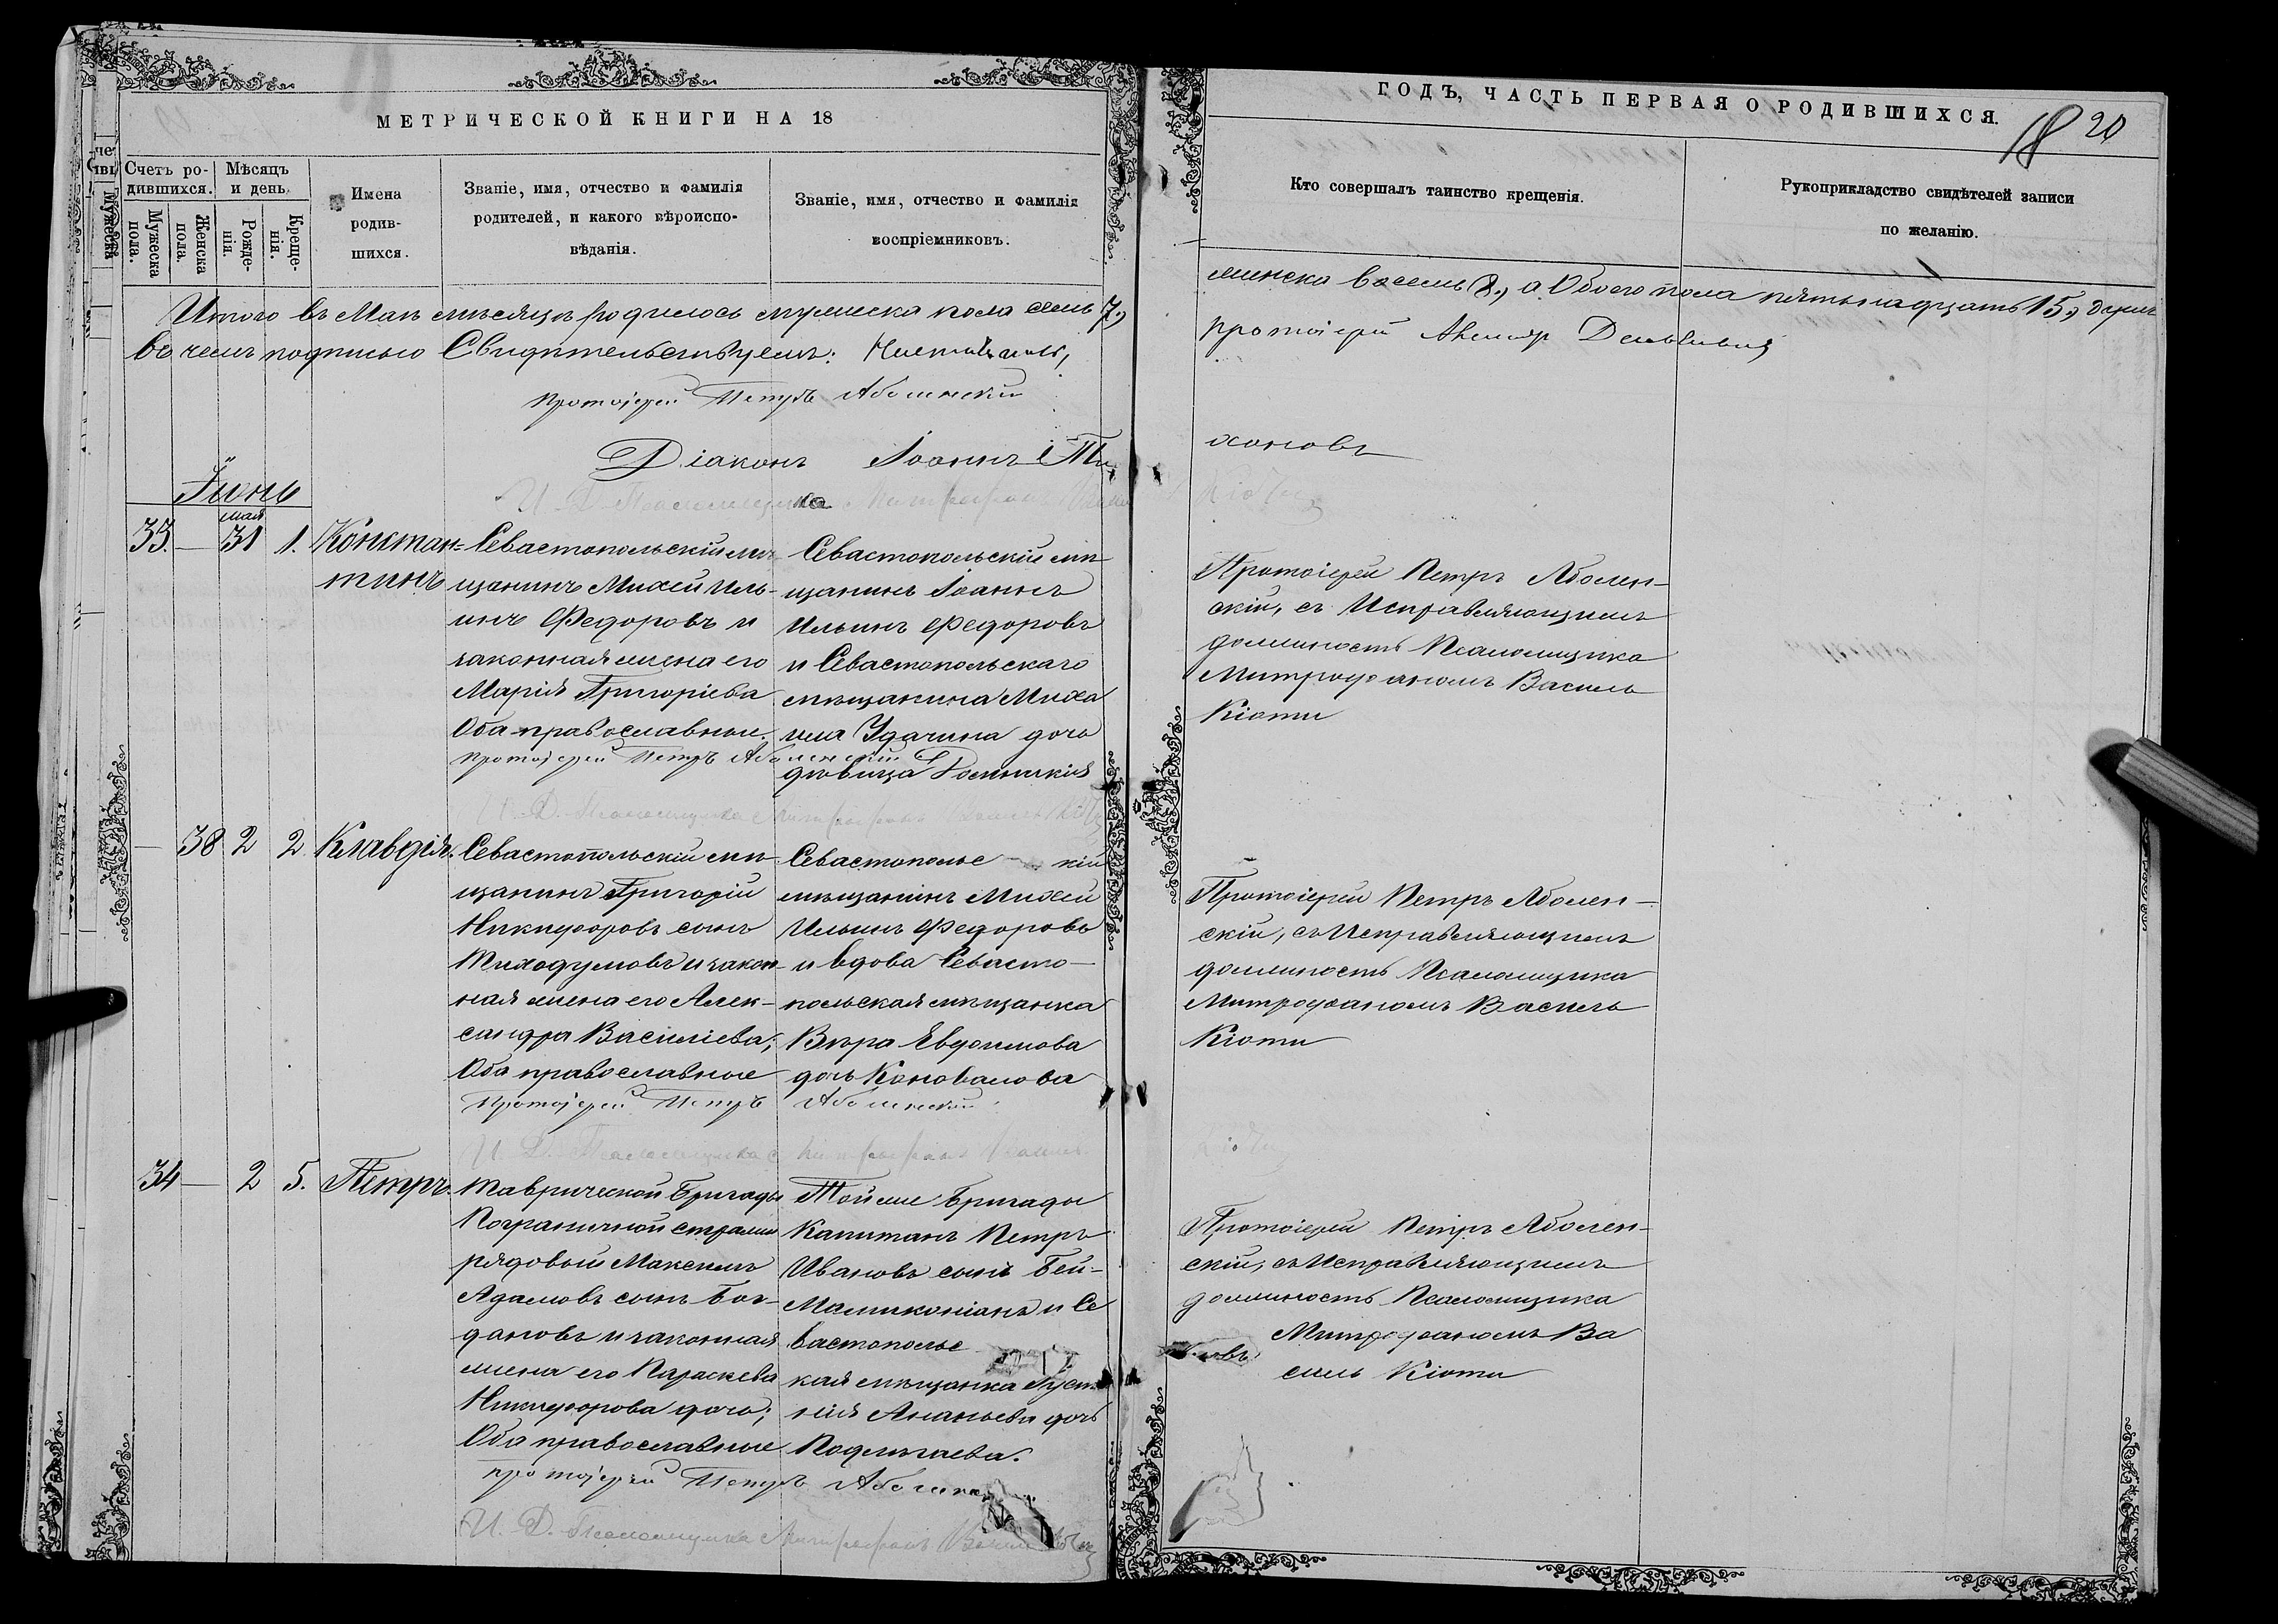 МЕТРИЧЕСКОЙ КНИГИ НА 18
ГОДЪ, ЧАСТЬ ПЕРВАЯ О РОДИВШИХСЯ.
18 20
Счетъ ро-
дившихся.
Мужеска
пола.
Женска
пола.
Мѣсяцъ
и день.
Рожде-
нія.
Креще-
нія.
Имена
родив-
шихся.
Званіе, имя, отчество и фамилія
родителей, и какого вѣроиспо-
вѣданія.
Званіе, имя, отчество и фамилія
воспріемниковъ.
Кто совершалъ таинство крещенія.
Рукоприкладство свидѣтелей записи
по желанію.
Итого въ Маѣ мѣсяцѣ родилось мужеска пола семь 7,
женска восемь 8, а Обоего пола пятьнадцать 15,
въ чемъ подписью Свидѣтельствуемъ:
протоіерей
протоіерей Петръ Аболенскій
Діаконъ Іоаннъ Ти
хоновъ
И. Д. Псаломщика
Іюнь
33. — мая 31 1.
Констан=
тинъ
Севастопольскій мѣ
щанинъ Михей Иль-
инъ Федоровъ и
законная жена его
Марія Григоріева
Оба православные.
протоіерей Петръ Аболенскій
Севастопольскій мѣ
щанинъ Іоаннъ
Ильинъ Федоровъ
и Севастопольскаго
мѣщанина Миха
ила Удачина дочь
дѣвица
Протоіерей Петръ Аболен-
скій, съ Исправляющимъ
должность Псаломщика
Митрофаномъ Василь
Кіоти
И. Д. Псаломщика Митрофанъ
— 38 2 2
Клавдія.
Севастопольскій мѣ
щанинъ Григорій
Никифоровъ сынъ
Тиходумовъ и закон-
ная жена его Алек-
сандра Василіева;
Оба православные
протоіерей Петръ Аболенскій
Севастопольс кій
мѣщанинъ Михей
Ильинъ Федоровъ
и вдова Севасто-
польская мѣщанка
Вѣра Евдокимова
дочь Коновалова
Протоіерей Петръ Аболен-
скій, съ Исправляющимъ
должность Псаломщика
Митрофаномъ Василь
Кіоти
И. Д. Псаломщика
34 — 2 5.
Петръ.
Таврической Бригады
Пограничной стражи
рядовый Максимъ
Адамовъ сынъ Бог-
дановъ и законная
жена его Параскева
Никифорова дочь;
Оба православные
протоіерей Петръ
Той же Бригады
Капитанъ Петръ
Ивановъ сынъ Бей-
Мамиконіанъ и Се
вастопольс
кая мѣщанка
Ананьева дочь
Протоіерей Петръ Аболен-
скій, съ Исправляющимъ
должность Псаломщика
Митрофаномъ Ва
силь Кіоти
И. Д. Псаломщика Митрофанъ